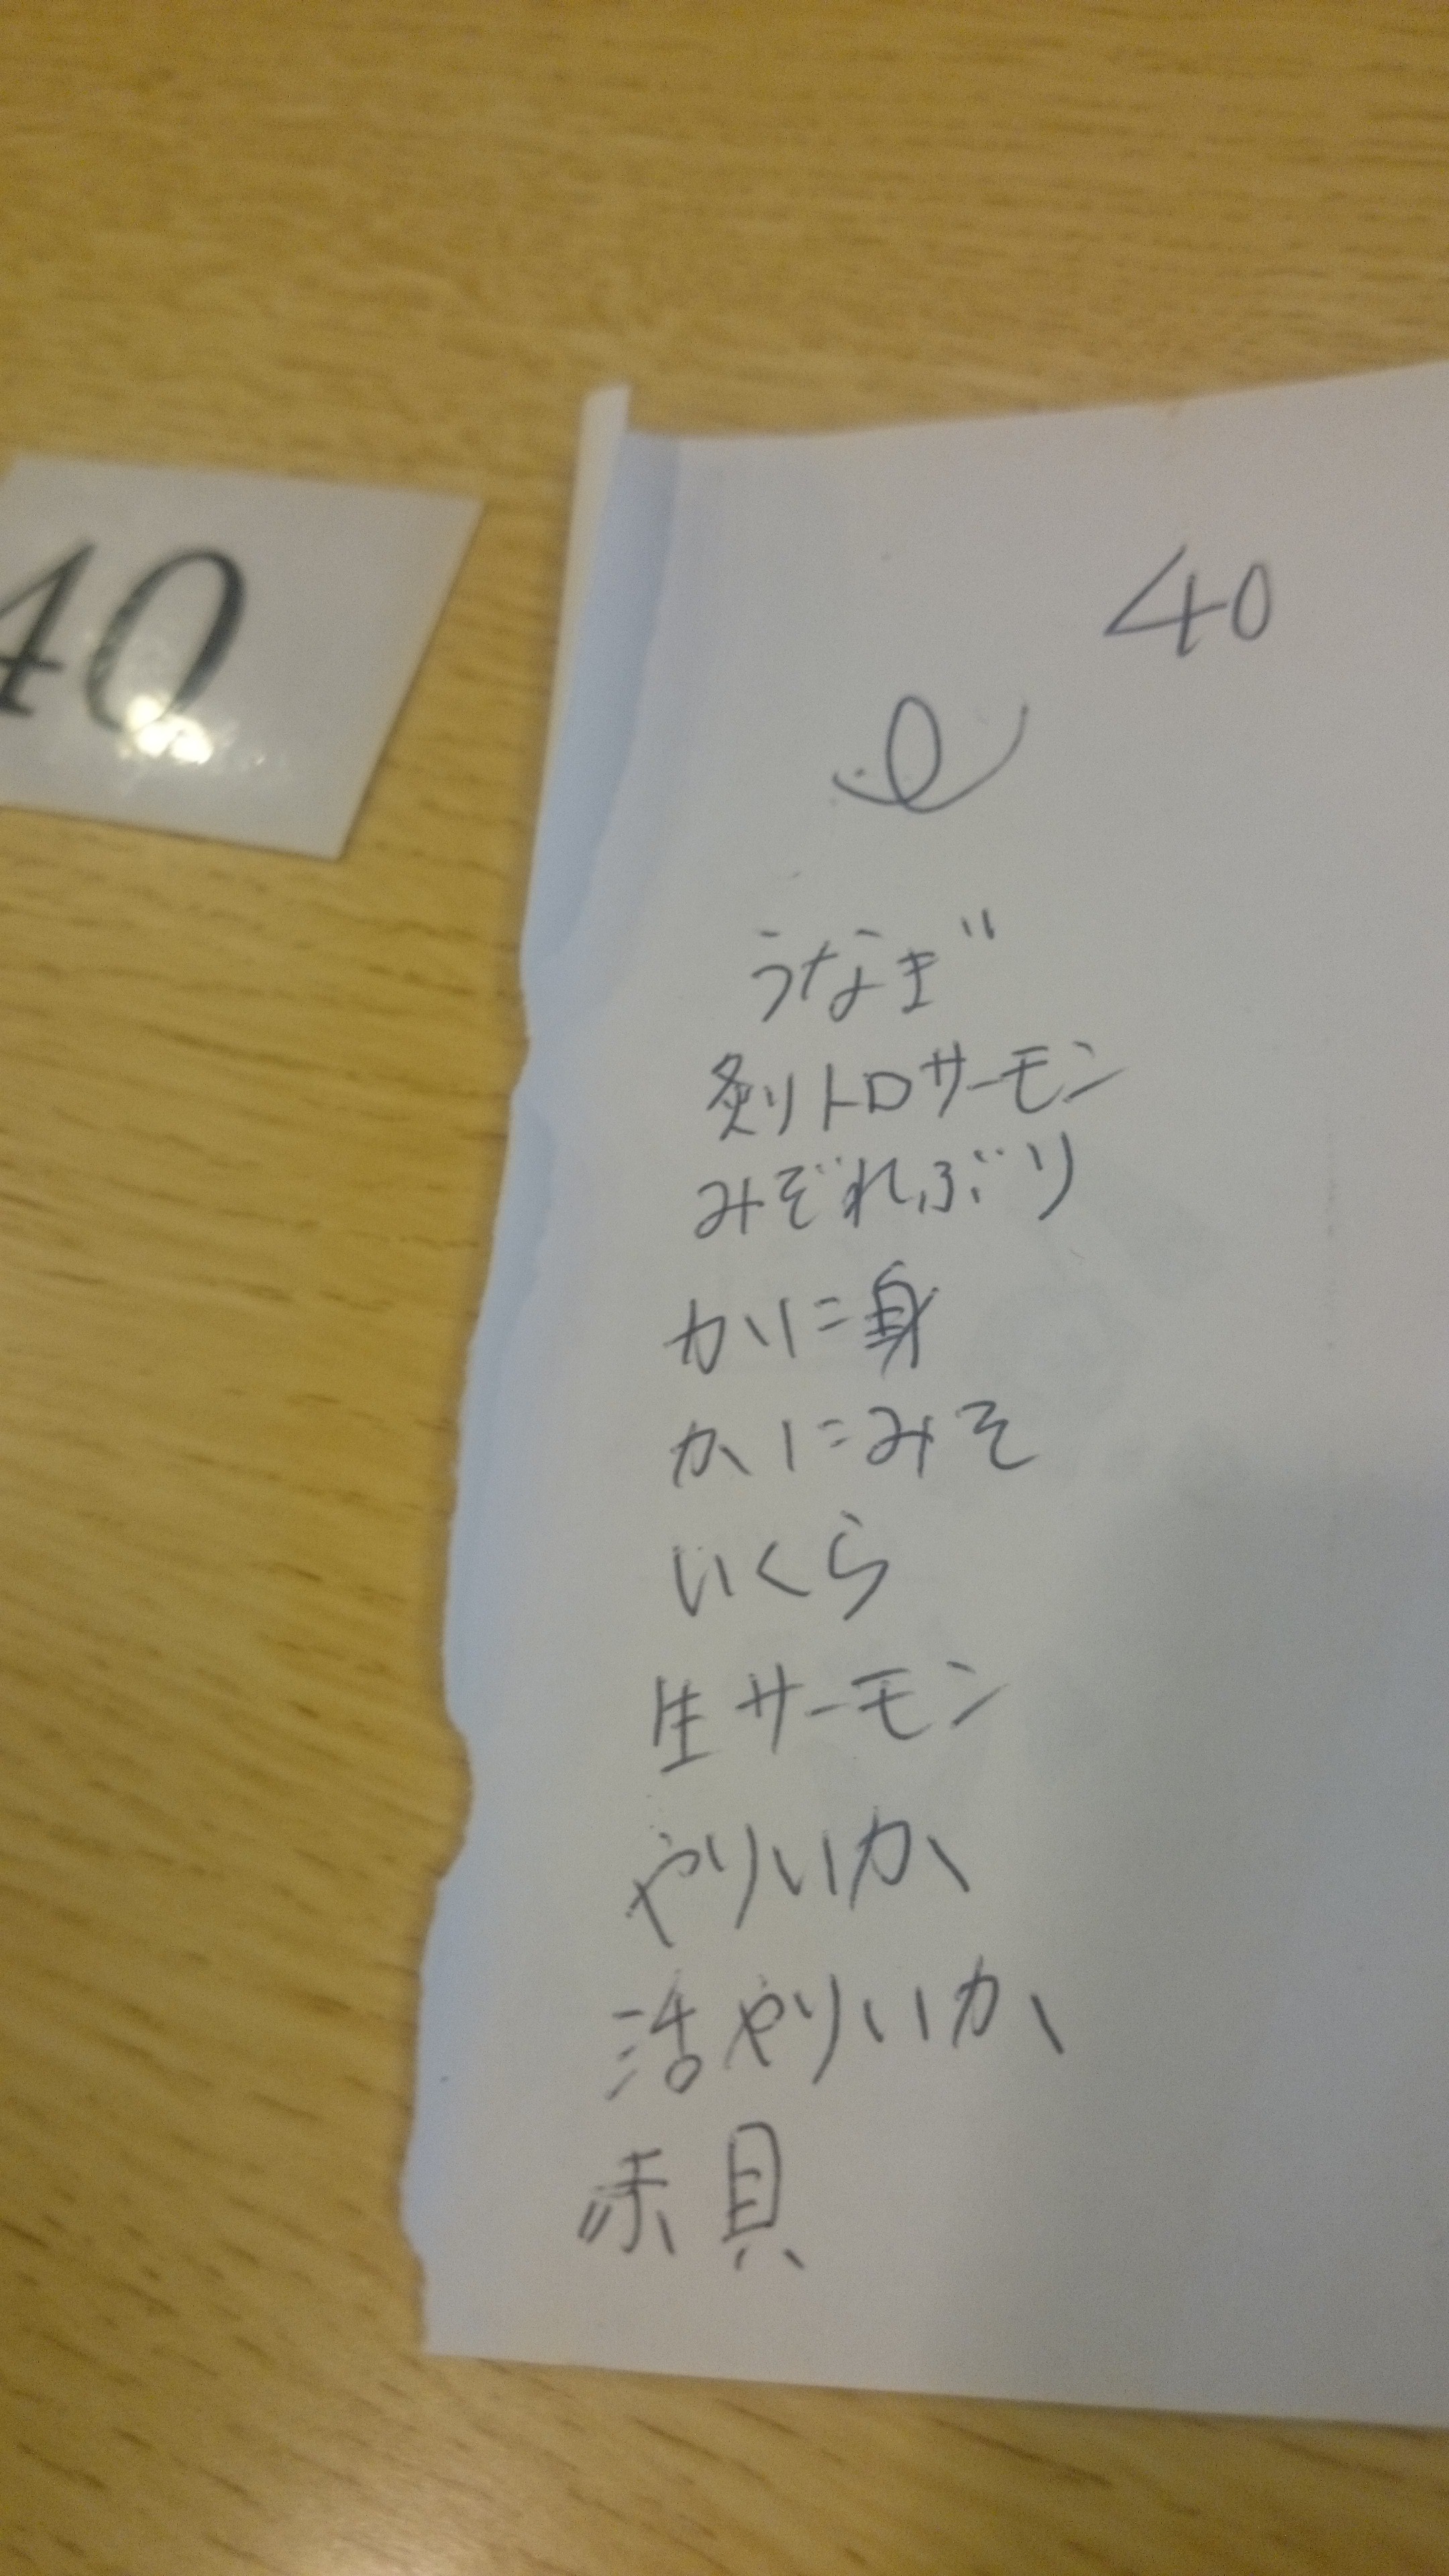 40
40
うなぎ
炙りトロサーモン
みぞれぶり
かに身
かにみそ
いくら
生サーモン
やりいか
活やりいか
赤貝